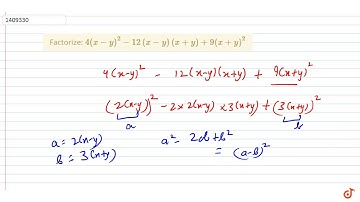 1409330
Factorize: 4(x − y)² − 12 (x − y) (x + y) + 9(x + y)²
4(x-y)² - 12(x-y)(x+y) + 9(x+y)²
(2(x-y))² - 2×2(x-y) ×3(x+y) + (3(x+y))²
a b
a = 2(x-y) a² - 2ab + b²
b = 3(x+y) = (a-b)²